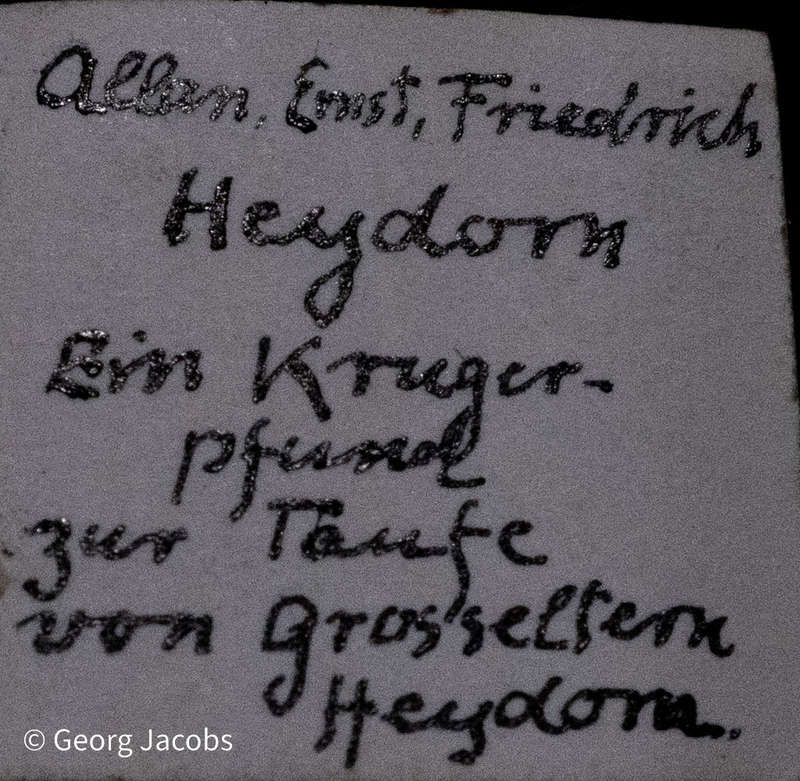 Allan, Ernst, Friedrich
Heydorn
Ein Kruger-
pfund
zur Taufe
von Grosseltern
Heydorn.
© Georg Jacobs